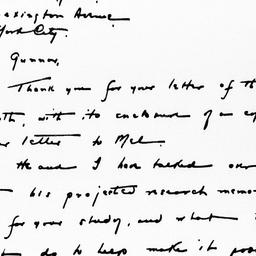 exington Avenue
York City.
Gunnar,
Thank you for your letter of th
th, with its enclosure of a cop
r letter to Mel.
He and I have talked over
his projected research memo
for your study, and what
do to help make it pos